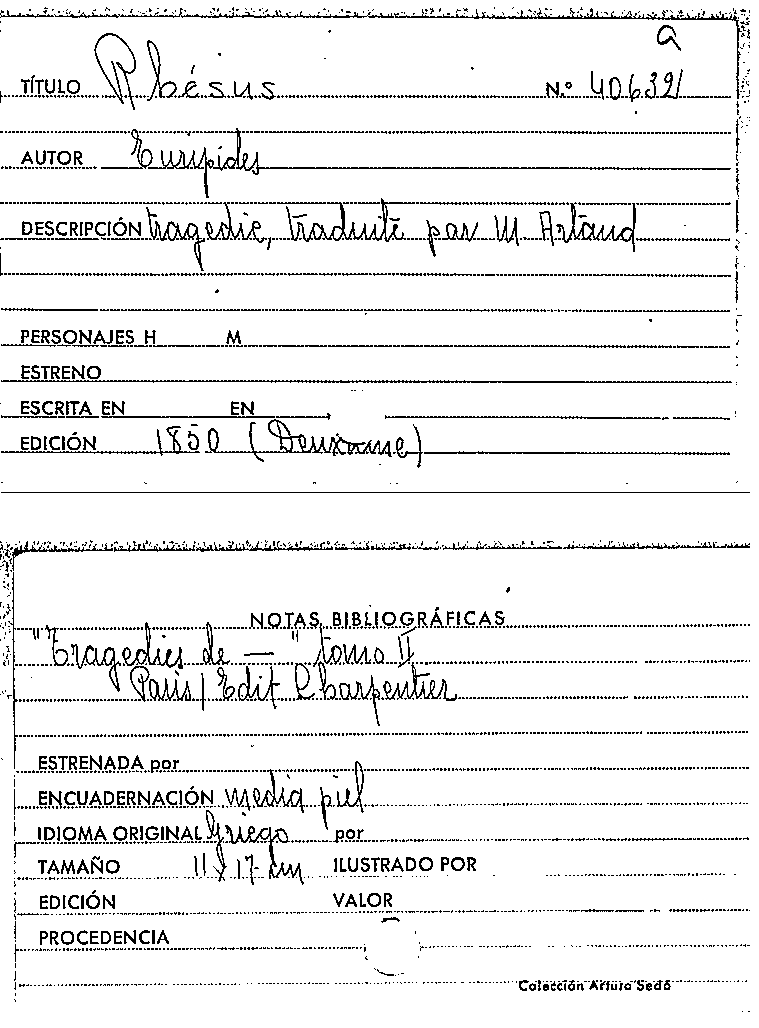 a
TÍTULO Rhésus N.º 40639
AUTOR Euripides
DESCRIPCIÓN tragedie, traduite par M. Artaud
PERSONAJES H M
ESTRENO
ESCRITA EN EN
EDICIÓN 1850 (Deuxame)
NOTAS BIBLIOGRÁFICAS
"Tragedies de — " tomo II
Paris / Edit Charpentier
ESTRENADA por
ENCUADERNACIÓN media piel
IDIOMA ORIGINAL Griego por
TAMAÑO 11 x 17 cm ILUSTRADO POR
EDICIÓN VALOR
PROCEDENCIA
Colección Arturo Sedó